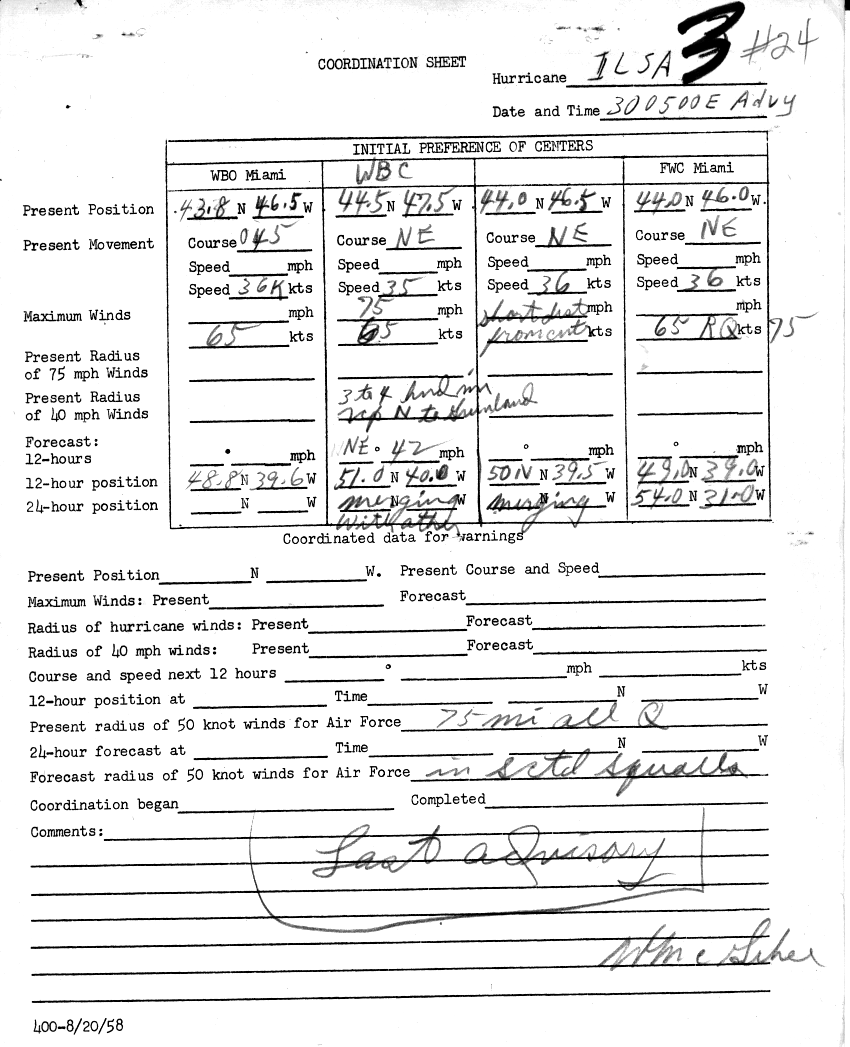 COORDINATION SHEET
Hurricane ILSA 3 #24
Date and Time 300500E Advy
INITIAL PREFERENCE OF CENTERS
WBO Miami WBC FWC Miami
Present Position 43.8 N 46.5 W 44.5 N 47.5 W 44.0 N 46.5 W 44.0 N 46.0 W.
Present Movement Course 045 Course NE Course NE Course NE
Speed mph Speed mph Speed mph Speed mph
Speed 36K kts Speed 35 kts Speed 36 kts Speed 36 kts
Maximum Winds mph 75 mph short dist mph mph
65 kts 65 kts from cntr kts 65 RQ kts 75
Present Radius
of 75 mph Winds
Present Radius 3 to 4 hnd mi
of 40 mph Winds N to
Forecast:
12-hours ° mph NE ° 42 mph ° mph ° mph
12-hour position 48.8 N 39.6 W 51.0 N 40.0 W 50 N N 39.5 W 49.0 N 39.0 W
24-hour position N W merging N W merging N W 54.0 N 31.0 W
with
Coordinated data for warnings
Present Position N W. Present Course and Speed
Maximum Winds: Present Forecast
Radius of hurricane winds: Present Forecast
Radius of 40 mph winds: Present Forecast
Course and speed next 12 hours ° mph kts
12-hour position at Time N W
Present radius of 50 knot winds for Air Force 75 mi all Q
24-hour forecast at Time N W
Forecast radius of 50 knot winds for Air Force in sctd squalls
Coordination began Completed
Comments:
Last advisory
400-8/20/58